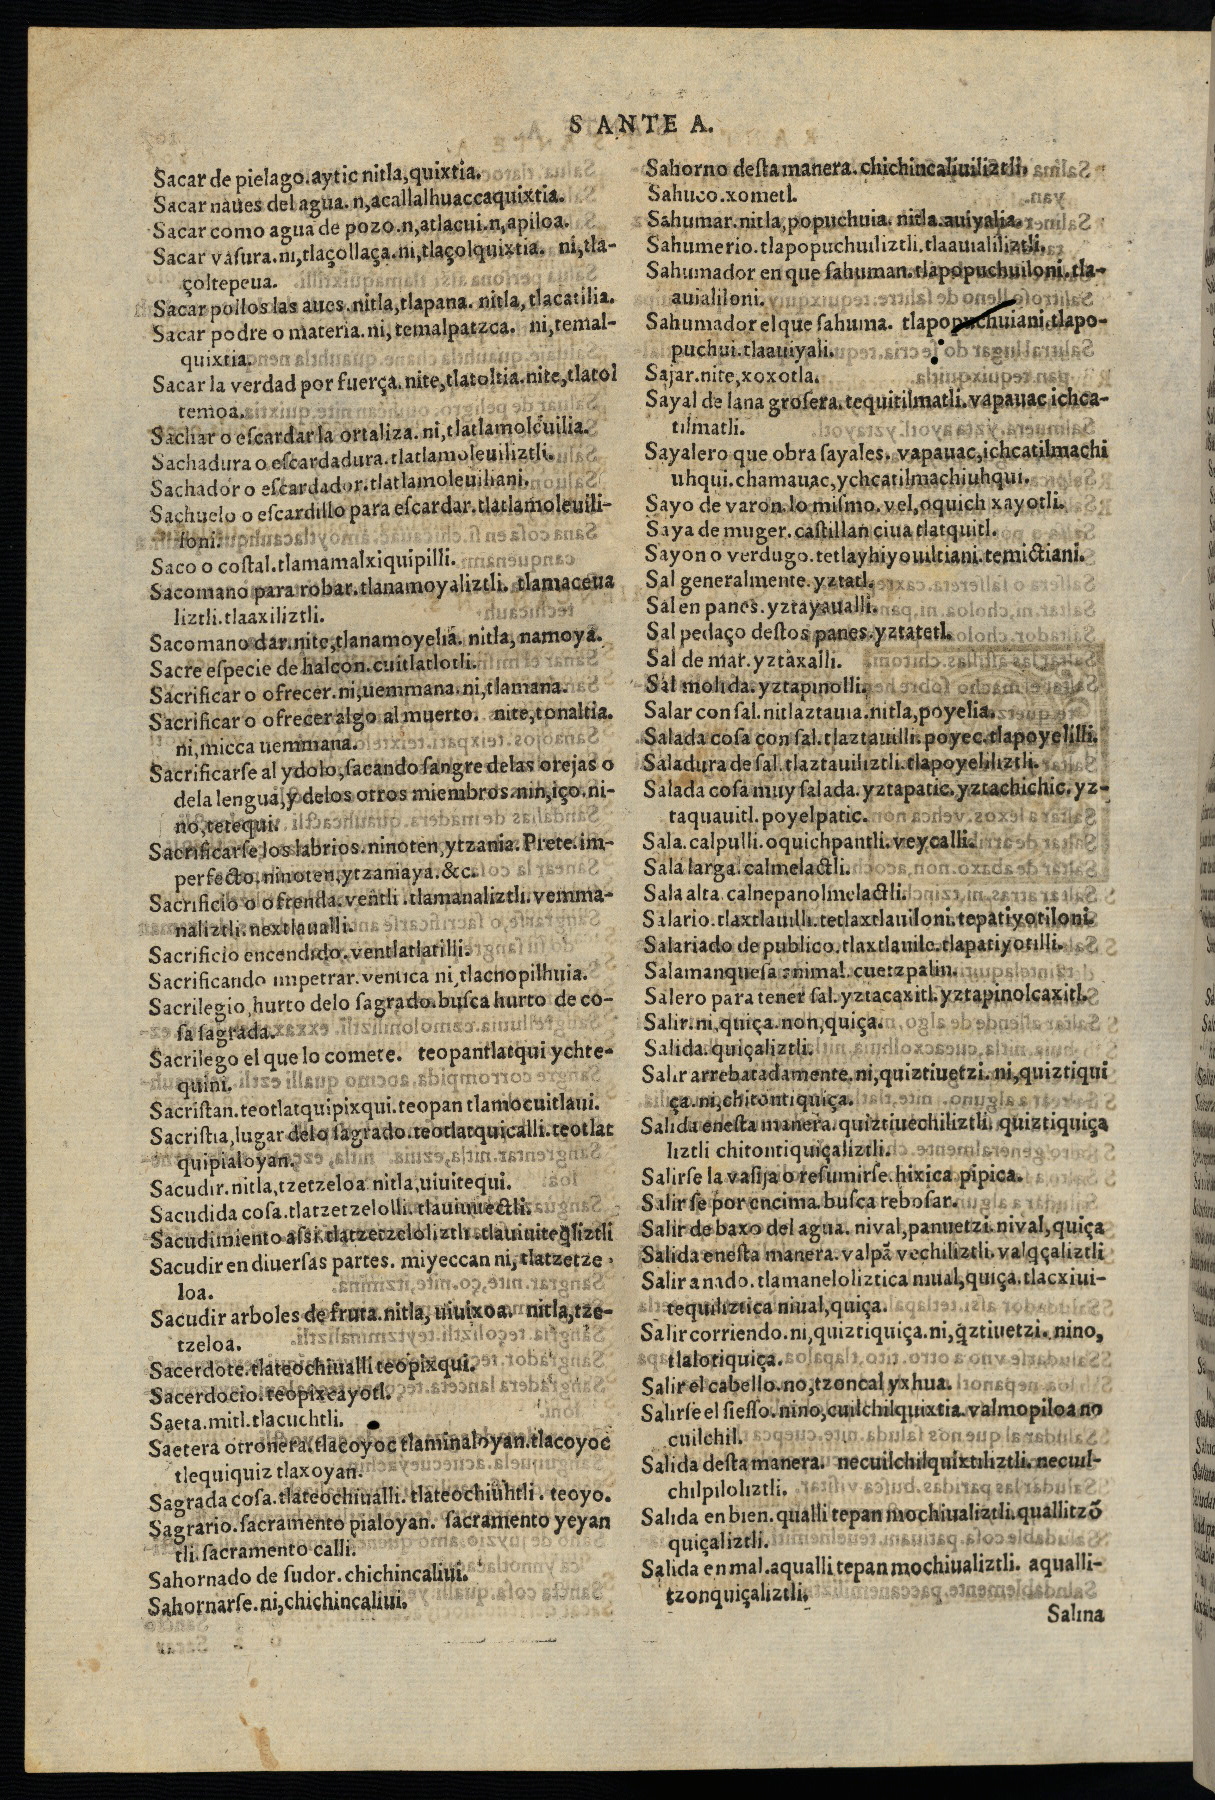 S ANTE A.
Sacar de pielago.aytic nitla,quixtia.
Sacar naues del agua. n,acallalhuaccaquixtia.
Sacar como agua de pozo.n,atlacui.n,apiloa.
Sacar vasura.ni,tlaçollaça.ni,tlaçolquixtia. ni,tla-
çoltepeua.
Sacar pollos las aues.nitla,tlapana. nitla,tlacatilia.
Sacar podre o materia.ni,temalpatzca. ni,temal-
quixtia.
Sacar la verdad por fuerça.nite,tlatoltia.nite,tlatol
temoa.
Sachar o eſcardar la ortaliza. ni,tlatlamoleuilia.
Sachadura o eſcardadura.tlatlamoleuiliztli.
Sachador o eſcardador.tlatlamoleuiliani.
Sachuelo o eſcardillo para eſcardar.tlatlamoleuili-
loni.
Saco o coſtal.tlamamalxiquipilli.
Sacomano para robar.tlanamoyaliztli. tlamaceua
liztli.tlaaxiliztli.
Sacomano dar.nite,tlanamoyelia. nitla,namoya.
Sacre eſpecie de halcon.cuitlatlotli.
Sacrificar o ofrecer.ni,uemmana.ni,tlamana.
Sacrificar o ofrecer algo al muerto. nite,tonaltia.
ni,micca uemmana.
Sacrificarſe al ydolo,ſacando ſangre delas orejas o
dela lengua,y delos otros miembros.nin,iço.ni-
no,tetequi.
Sacrificarſe los labrios.ninoten,ytzania.Prete.im-
perfecto.ninoten,ytzaniaya.&c.
Sacrificio o ofrenda.ventli.tlamanaliztli.vemma-
naliztli.nextlaualli.
Sacrificio encendido.ventlatlatilli.
Sacrificando impetrar.ventica ni,tlacnopilhuia.
Sacrilegio,hurto delo ſagrado.buſca hurto de co-
ſa ſagrada.
Sacrilego el que lo comete. teopantlatqui ychte-
quini.
Sacriſtan.teotlatquipixqui.teopan tlamocuitlaui.
Sacriſtia,lugar delo ſagrado.teotlatquicalli.teotlat
quipialoyan.
Sacudir.nitla,tzetzeloa nitla,uiuitequi.
Sacudida coſa.tlatzetzelolli.tlauiuitectli.
Sacudimiento aſsi.tlatzetzeloliztli.tlauiuiteq̃liztli
Sacudir en diuerſas partes. miyeccan ni,tlatzetze-
loa.
Sacudir arboles de fruta.nitla,uiuixoa. nitla,tze-
tzeloa.
Sacerdote.tlateochiualli teopixqui.
Sacerdocio.teopixcayotl.
Saeta.mitl.tlacuchtli.
Saetera o tronera.tlacoyoc tlaminaloyan.tlacoyoc
tlequiquiz tlaxoyan.
Sagrada coſa.tlateochiualli.tlateochiuhtli. teoyo.
Sagrario.ſacramento pialoyan. ſacramento yeyan
tli.ſacramento calli.
Sahornado de ſudor.chichincaliui.
Sahornarſe.ni,chichincaliui.
Sahorno deſta manera.chichincaliuiliztli.
Sahuco.xometl.
Sahumar.nitla,popuchuia. nitla.auiyalia.
Sahumerio.tlapopuchuiliztli.tlaauialiliztli.
Sahumador en que ſahuman.tlapopuchuiloni.tla-
auialiloni.
Sahumador el que ſahuma. tlapopuchuiani.tlapo-
puchui.tlaauiyali.
Sajar.nite,xoxotla.
Sayal de lana groſera.tequitilmatli.vapauac ichca-
tilmatli.
Sayalero que obra ſayales. vapauac,ichcatilmachi
uhqui.chamauac,ychcatilmachiuhqui.
Sayo de varon.lo miſmo.vel,oquich xayotli.
Saya de muger.caſtillan ciua tlatquitl.
Sayon o verdugo.tetlayhiyouiltiani.temictiani.
Sal generalmente.yztatl.
Sal en panes.yztayaualli.
Sal pedaço deſtos panes.yztatetl.
Sal de mar.yztaxalli.
Sal molida.yztapinolli.
Salar con ſal.nitlaztauia.nitla,poyelia.
Salada coſa con ſal.tlaztauilli.poyec.tlapoyelilli.
Saladura de ſal.tlaztauiliztli.tlapoyeliliztli.
Salada coſa muy ſalada.yztapatic.yztachichic.yz-
taquauitl.poyelpatic.
Sala.calpulli.oquichpantli.veycalli.
Sala larga.calmelactli.
Sala alta.calnepanolmelactli.
Salario.tlaxtlauilli.tetlaxtlauiloni.tepatiyotiloni.
Salariado de publico.tlaxtlauilo.tlapatiyotilli.
Salamanqueſa animal.cuetzpalin.
Salero para tener ſal.yztacaxitl.yztapinolcaxitl.
Salir.ni,quiça.non,quiça.
Salida.quiçaliztli.
Salir arrebatadamente.ni,quiztiuetzi. ni,quiztiqui
ça.ni,chitontiquiça.
Salida eneſta manera.quiztiuechiliztli. quiztiquiça
liztli chitontiquiçaliztli.
Salirſe la vaſija o reſumirſe.hixica.pipica.
Salirſe por encima.buſca reboſar.
Salir de baxo del agua.nival,panuetzi.nival,quiça
Salida eneſta manera.valpã vechiliztli.valq̃çaliztli
Salir a nado.tlamaneloliztica niual,quiça.tlacxiui-
tequiliztica niual,quiça.
Salir corriendo.ni,quiztiquiça.ni,q̃ztiuetzi. nino,
tlalotiquiça.
Salir el cabello.no,tzoncal yxhua.
Salirſe el ſieſſo.nino,cuilchilquixtia.valmopiloa no
cuilchil.
Salida deſta manera. necuilchilquixtiliztli.necuil-
chilpiloliztli.
Salida en bien.qualli tepan mochiualiztli.quallitzõ
quiçaliztli.
Salida en mal.aqualli tepan mochiualiztli. aqualli-
tzonquiçaliztli.
Salina